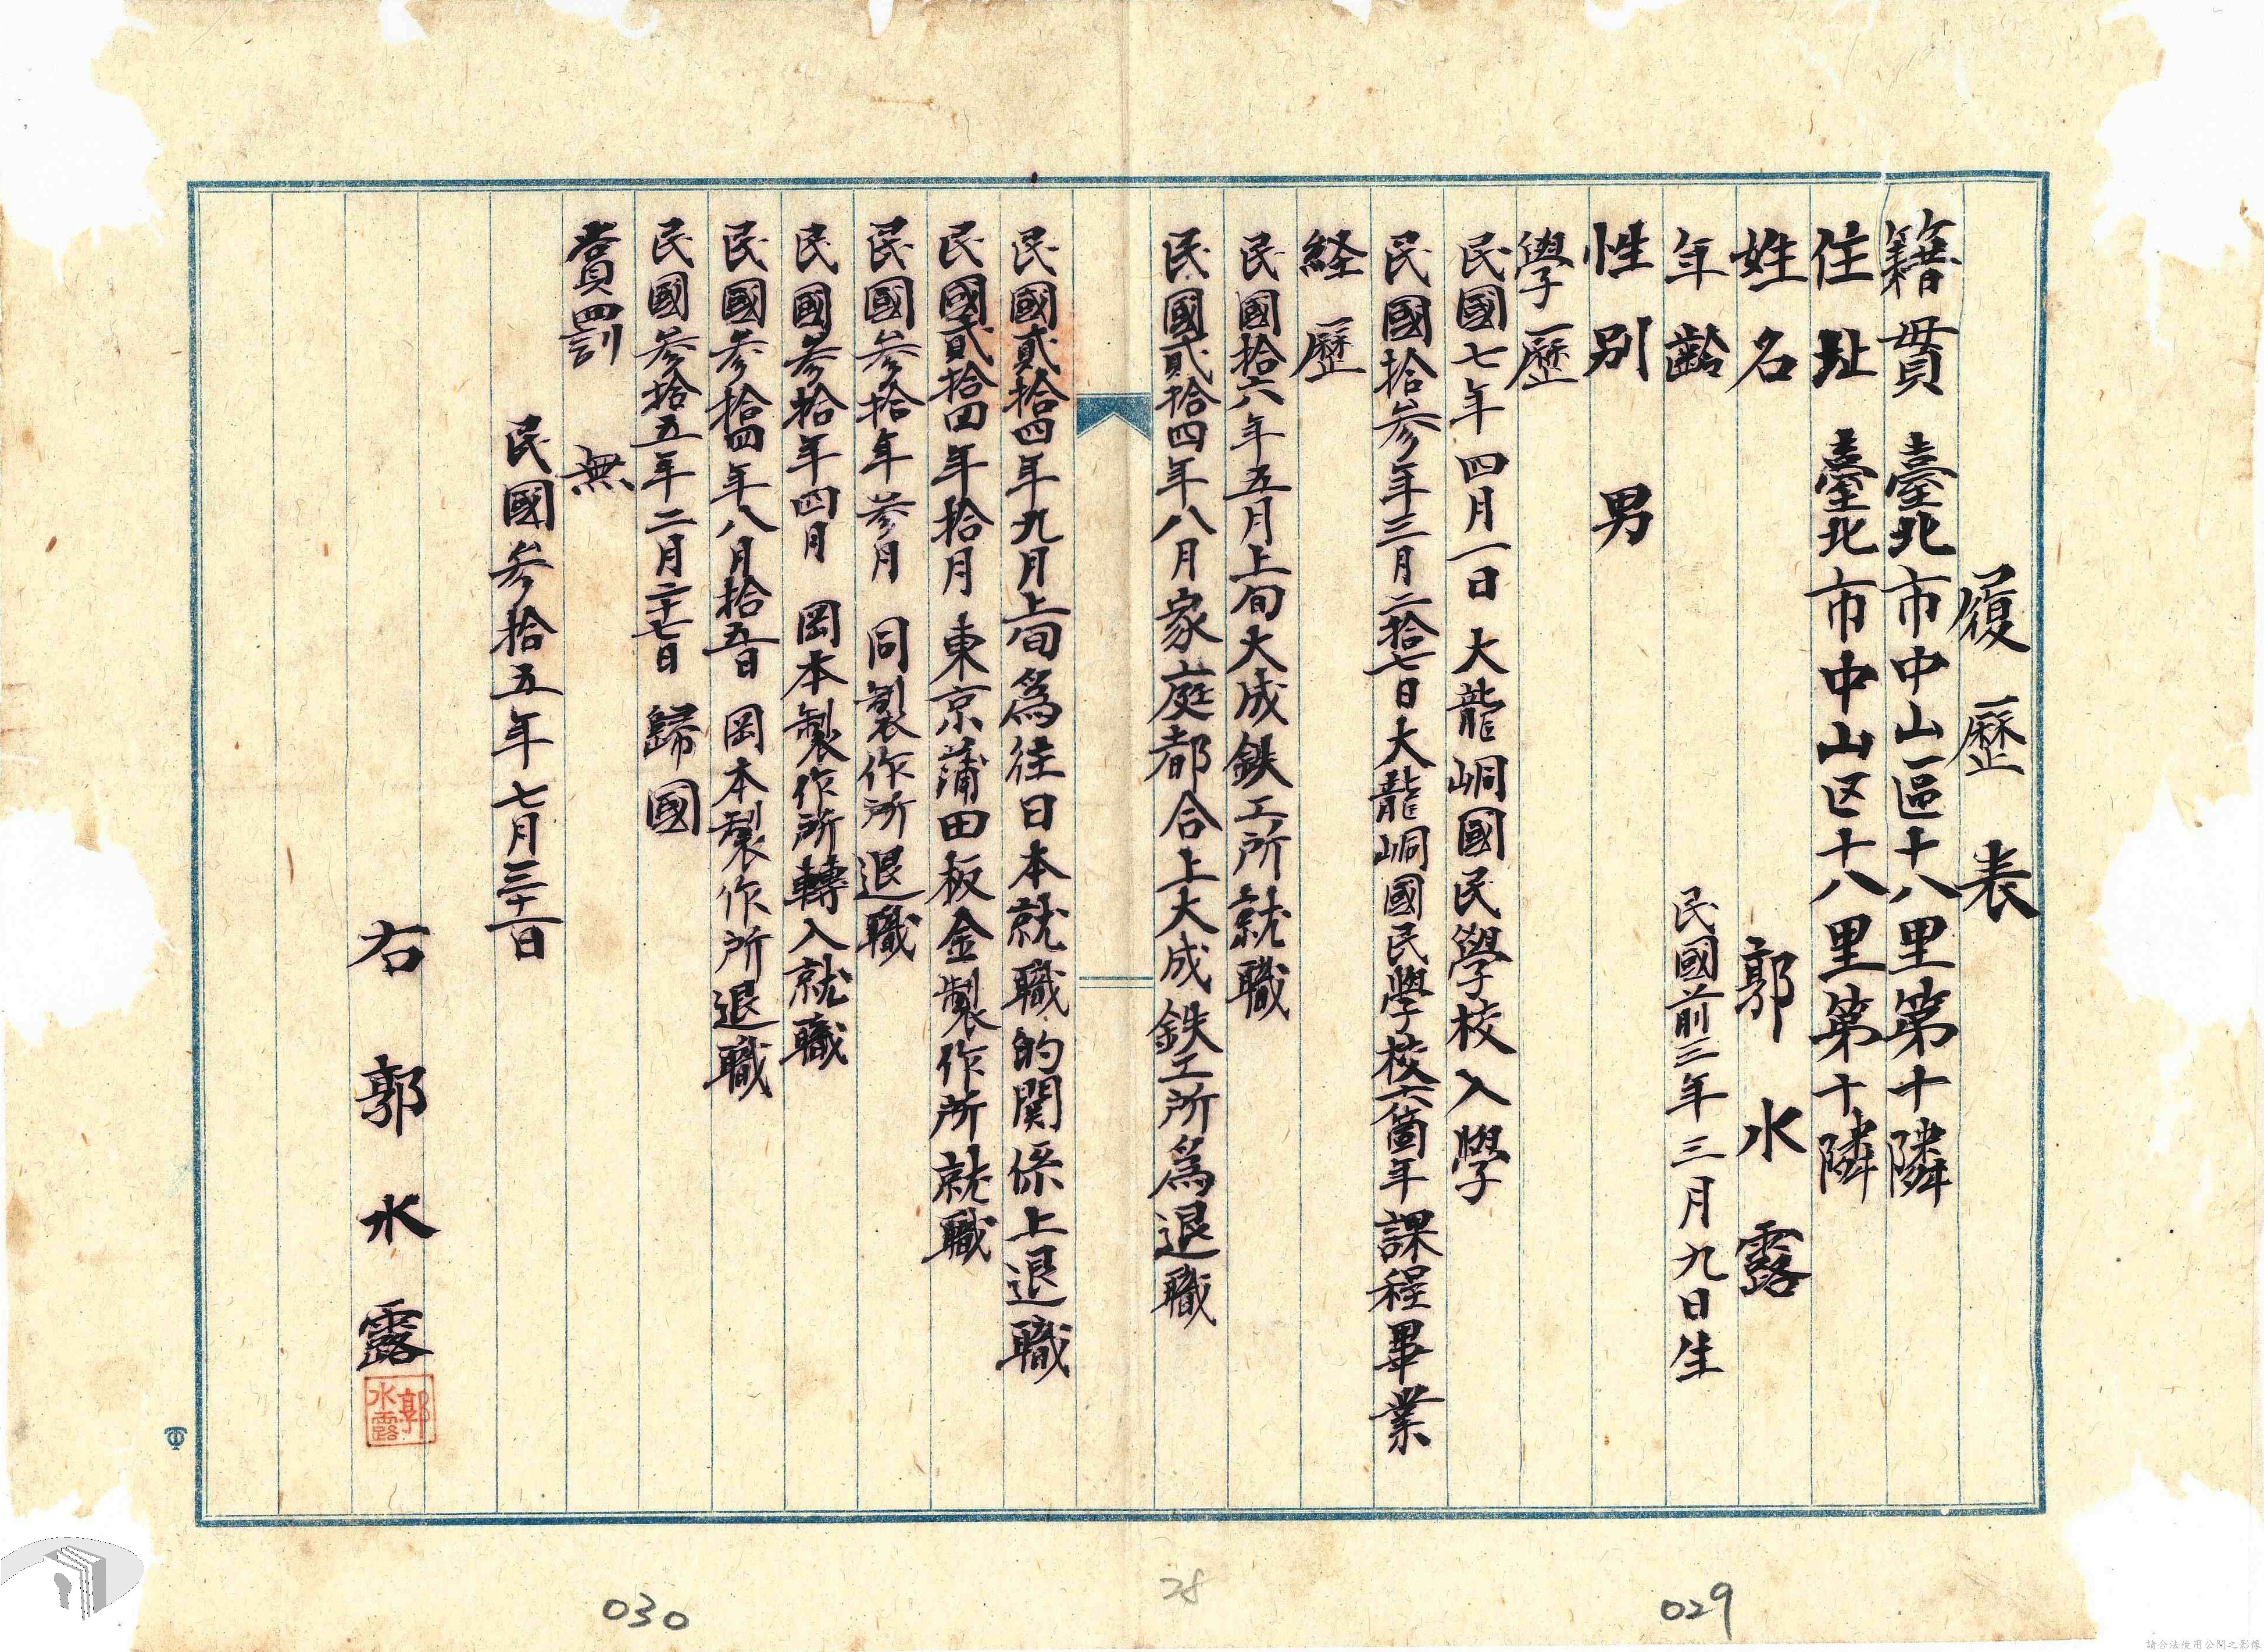 履歷表
籍貫 臺北市中山區十八里第十隣
住址 臺北市中山区十八里第十隣
姓名 郭水露
年齡 民國前三年三月九日生
性別 男
學歷
民國七年四月一日 大龍峒國民學校入學
民國拾参年三月二拾七日大龍峒國民學校六箇年課程畢業
経歷
民國拾六年五月上旬大成鉄工所就職
民國貳拾四年八月家庭都合上大成鉄工所為退職
民國貳拾四年九月上旬為往日本就職的関係上退職
民國貳拾四年拾月 東京蒲田板金製作所就職
民國参拾年参月 同製作所退職
民國参拾年四月 岡本製作所轉入就職
民國参拾四年八月拾五日 岡本製作所退職
民國参拾五年二月二十七日 歸國
賞罰 無
民國参拾五年七月三十一日
右 郭水露
郭水露
030
28
029
請合法使用公開之影像